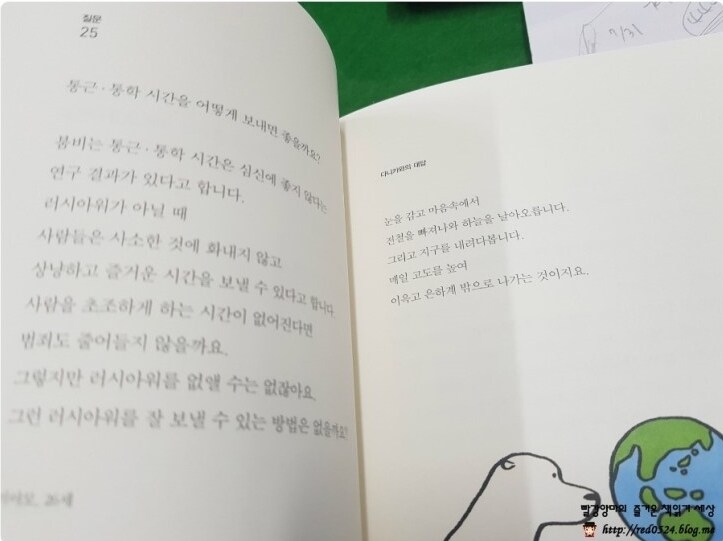 질문
25
통근·통학 시간을 어떻게 보내면 좋을까요?
붐비는 통근·통학 시간은 심신에 좋지 않다는
연구 결과가 있다고 합니다.
러시아워가 아닐 때
사람들은 사소한 것에 화내지 않고
상냥하고 즐거운 시간을 보낼 수 있다고 합니다.
사람을 초조하게 하는 시간이 없어진다면
범죄도 줄어들지 않을까요.
그렇지만 러시아워를 없앨 수는 없잖아요.
그런 러시아워를 잘 보낼 수 있는 방법은 없을까요?
26세
다니카와의 대답
눈을 감고 마음속에서
전철을 빠져나와 하늘을 날아오릅니다.
그리고 지구를 내려다봅니다.
매일 고도를 높여
이윽고 은하계 밖으로 나가는 것이지요.
빨강앙마의 즐거운 책읽기 세상
http://red0324.blog.me